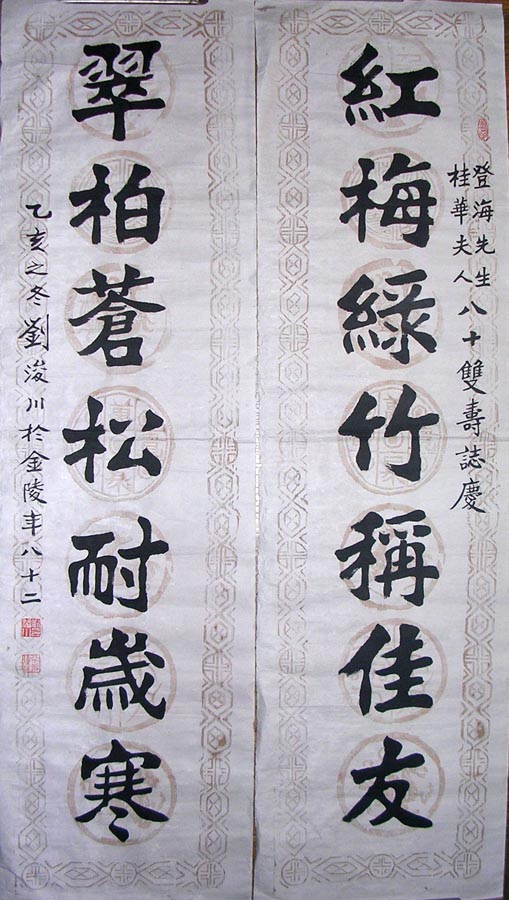 登海先生
桂華夫人
八十雙壽誌慶
紅梅綠竹稱佳友
翠柏蒼松耐歲寒
乙亥之冬劉浚川於金陵年八十二